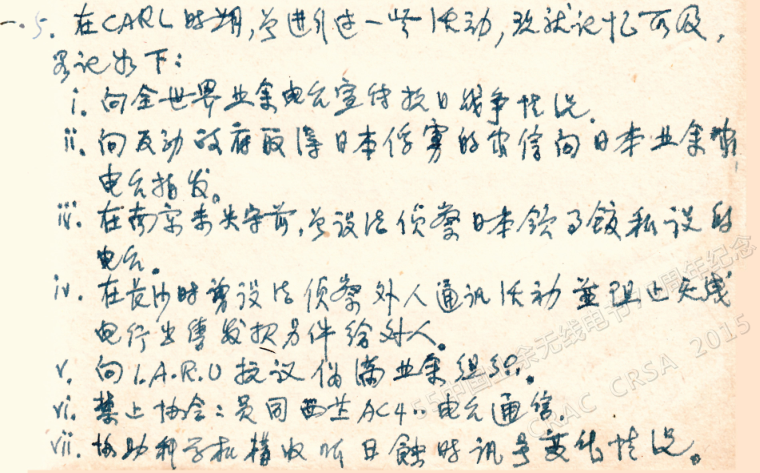 一.5. 在CARL时期,曾进行过一些活动,现就记忆所及,
略记如下:
i. 向全世界业余电台宣传抗日战争情况.
ii. 向反动政府取得日本俘虏的家信向日本业余
电台拍发。
iii. 在南京未失守前,曾设法侦察日本领事馆私设的
电台。
iv. 在长沙时曾设法侦察外人通讯活动并阻止无线
电行出售发报另件给外人。
v. 向I.A.R.U抗议伪满业余组织。
vi. 禁止协会会员同西芷AC4..电台通信.
vii. 协助科学机构收听日蚀时讯号变化情况。
中国业余无线电 周年纪念
CRAC CRSA 2015